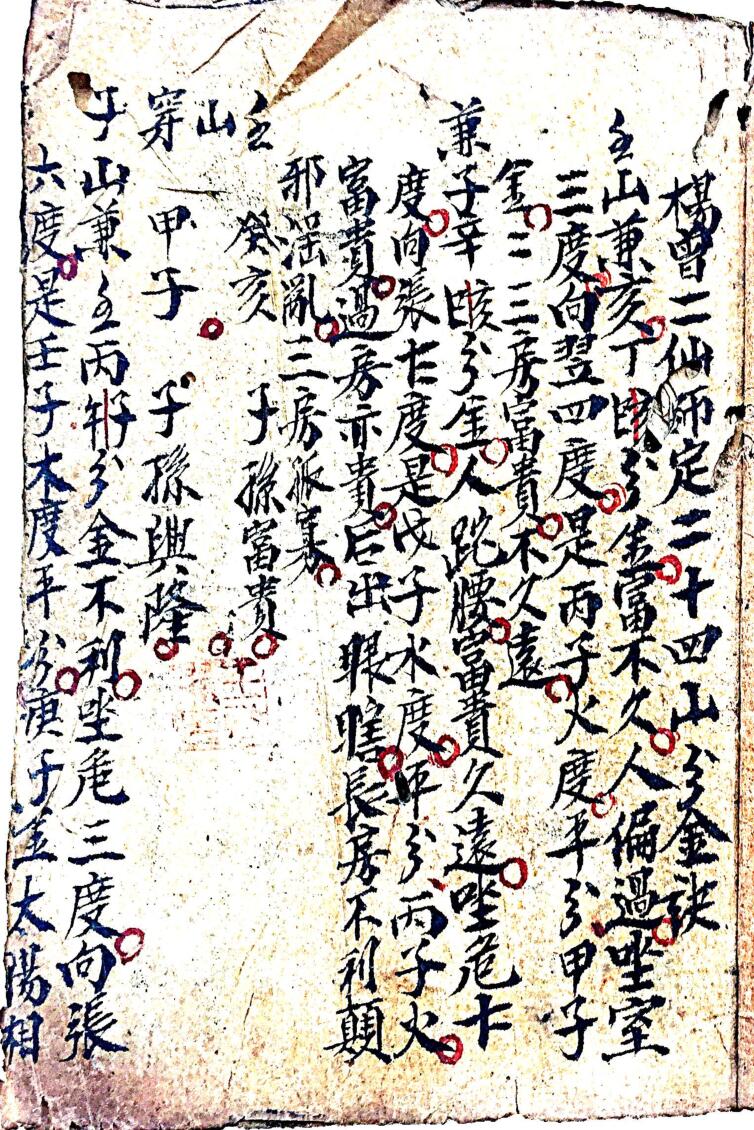 楊曾二仙師定二十四山分金訣
壬山兼亥丁分金富不久人偏過坐室
三度向翌四度是丙子火度平分甲子
金二三房富貴不久遠
兼子辛分金人跎腰富貴久遠坐危十
度向張七度是戊子水度平分丙子火
富貴過房亦貴后出眼瞎長房不利顛
邪淫亂三房孤寡
壬山穿
癸亥 子孫富貴
甲子 子孫興隆
子山兼壬丙午子分金不利坐危三度向張
六度是壬子木度平分庚子金太陽相